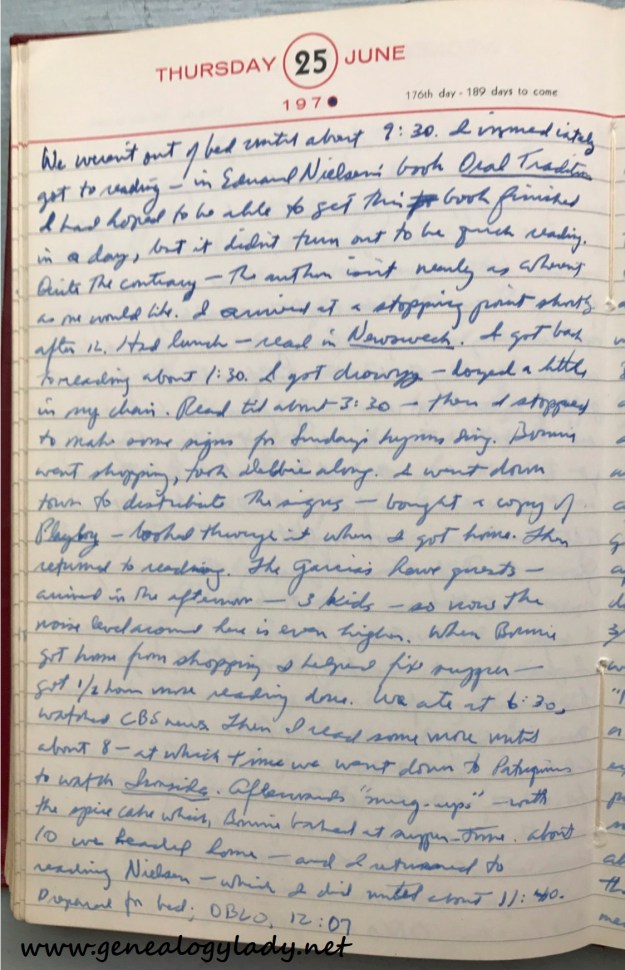 THURSDAY 25 JUNE
197
176th day - 189 days to come
We weren't out of bed until about 9:30. I immediately
got to reading – in Eduard Nielsen's book Oral Tradition
I had hoped to be able to get this book finished
in a day, but it didn't turn out to be quick reading.
Quite the contrary – the author isn't nearly as coherent
as one would like. I arrived at a stopping point shortly
after 12. Had lunch – read in Newsweek. I got back
to reading about 1:30. I got drowsy – dozed a little
in my chair. Read til about 3:30 – then I stopped
to make some signs for Sunday's hymn sing. Bonnie
went shopping, took Debbie along. I went down
town to distribute the signs – bought a copy of
Playboy – looked through it when I got home. Then
returned to reading. The Garcias have guests –
arrived in the afternoon – 3 kids – so now the
noise level around here is even higher. When Bonnie
got home from shopping I helped fix supper –
got 1/2 hour more reading done. We ate at 6:30,
watched CBS news. Then I read some more until
about 8 – at which time we went down to
to watch Ironside. Afterwards "mug-ups" – with
the spice cake which Bonnie baked at supper-time. About
10 we headed home – and I returned to
reading Nielsen – which I did until about 11:40.
Prepared for bed; OBLO, 12:07
www.genealogylady.net